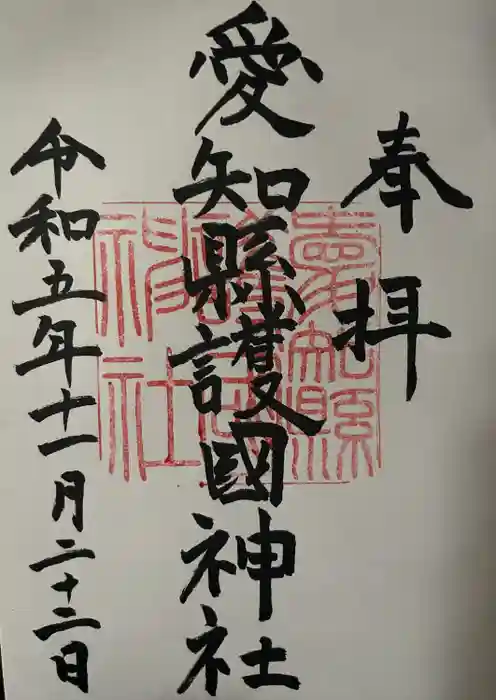 奉拝
愛知縣護國神社
愛知縣護國神社
令和五年十一月二十二日